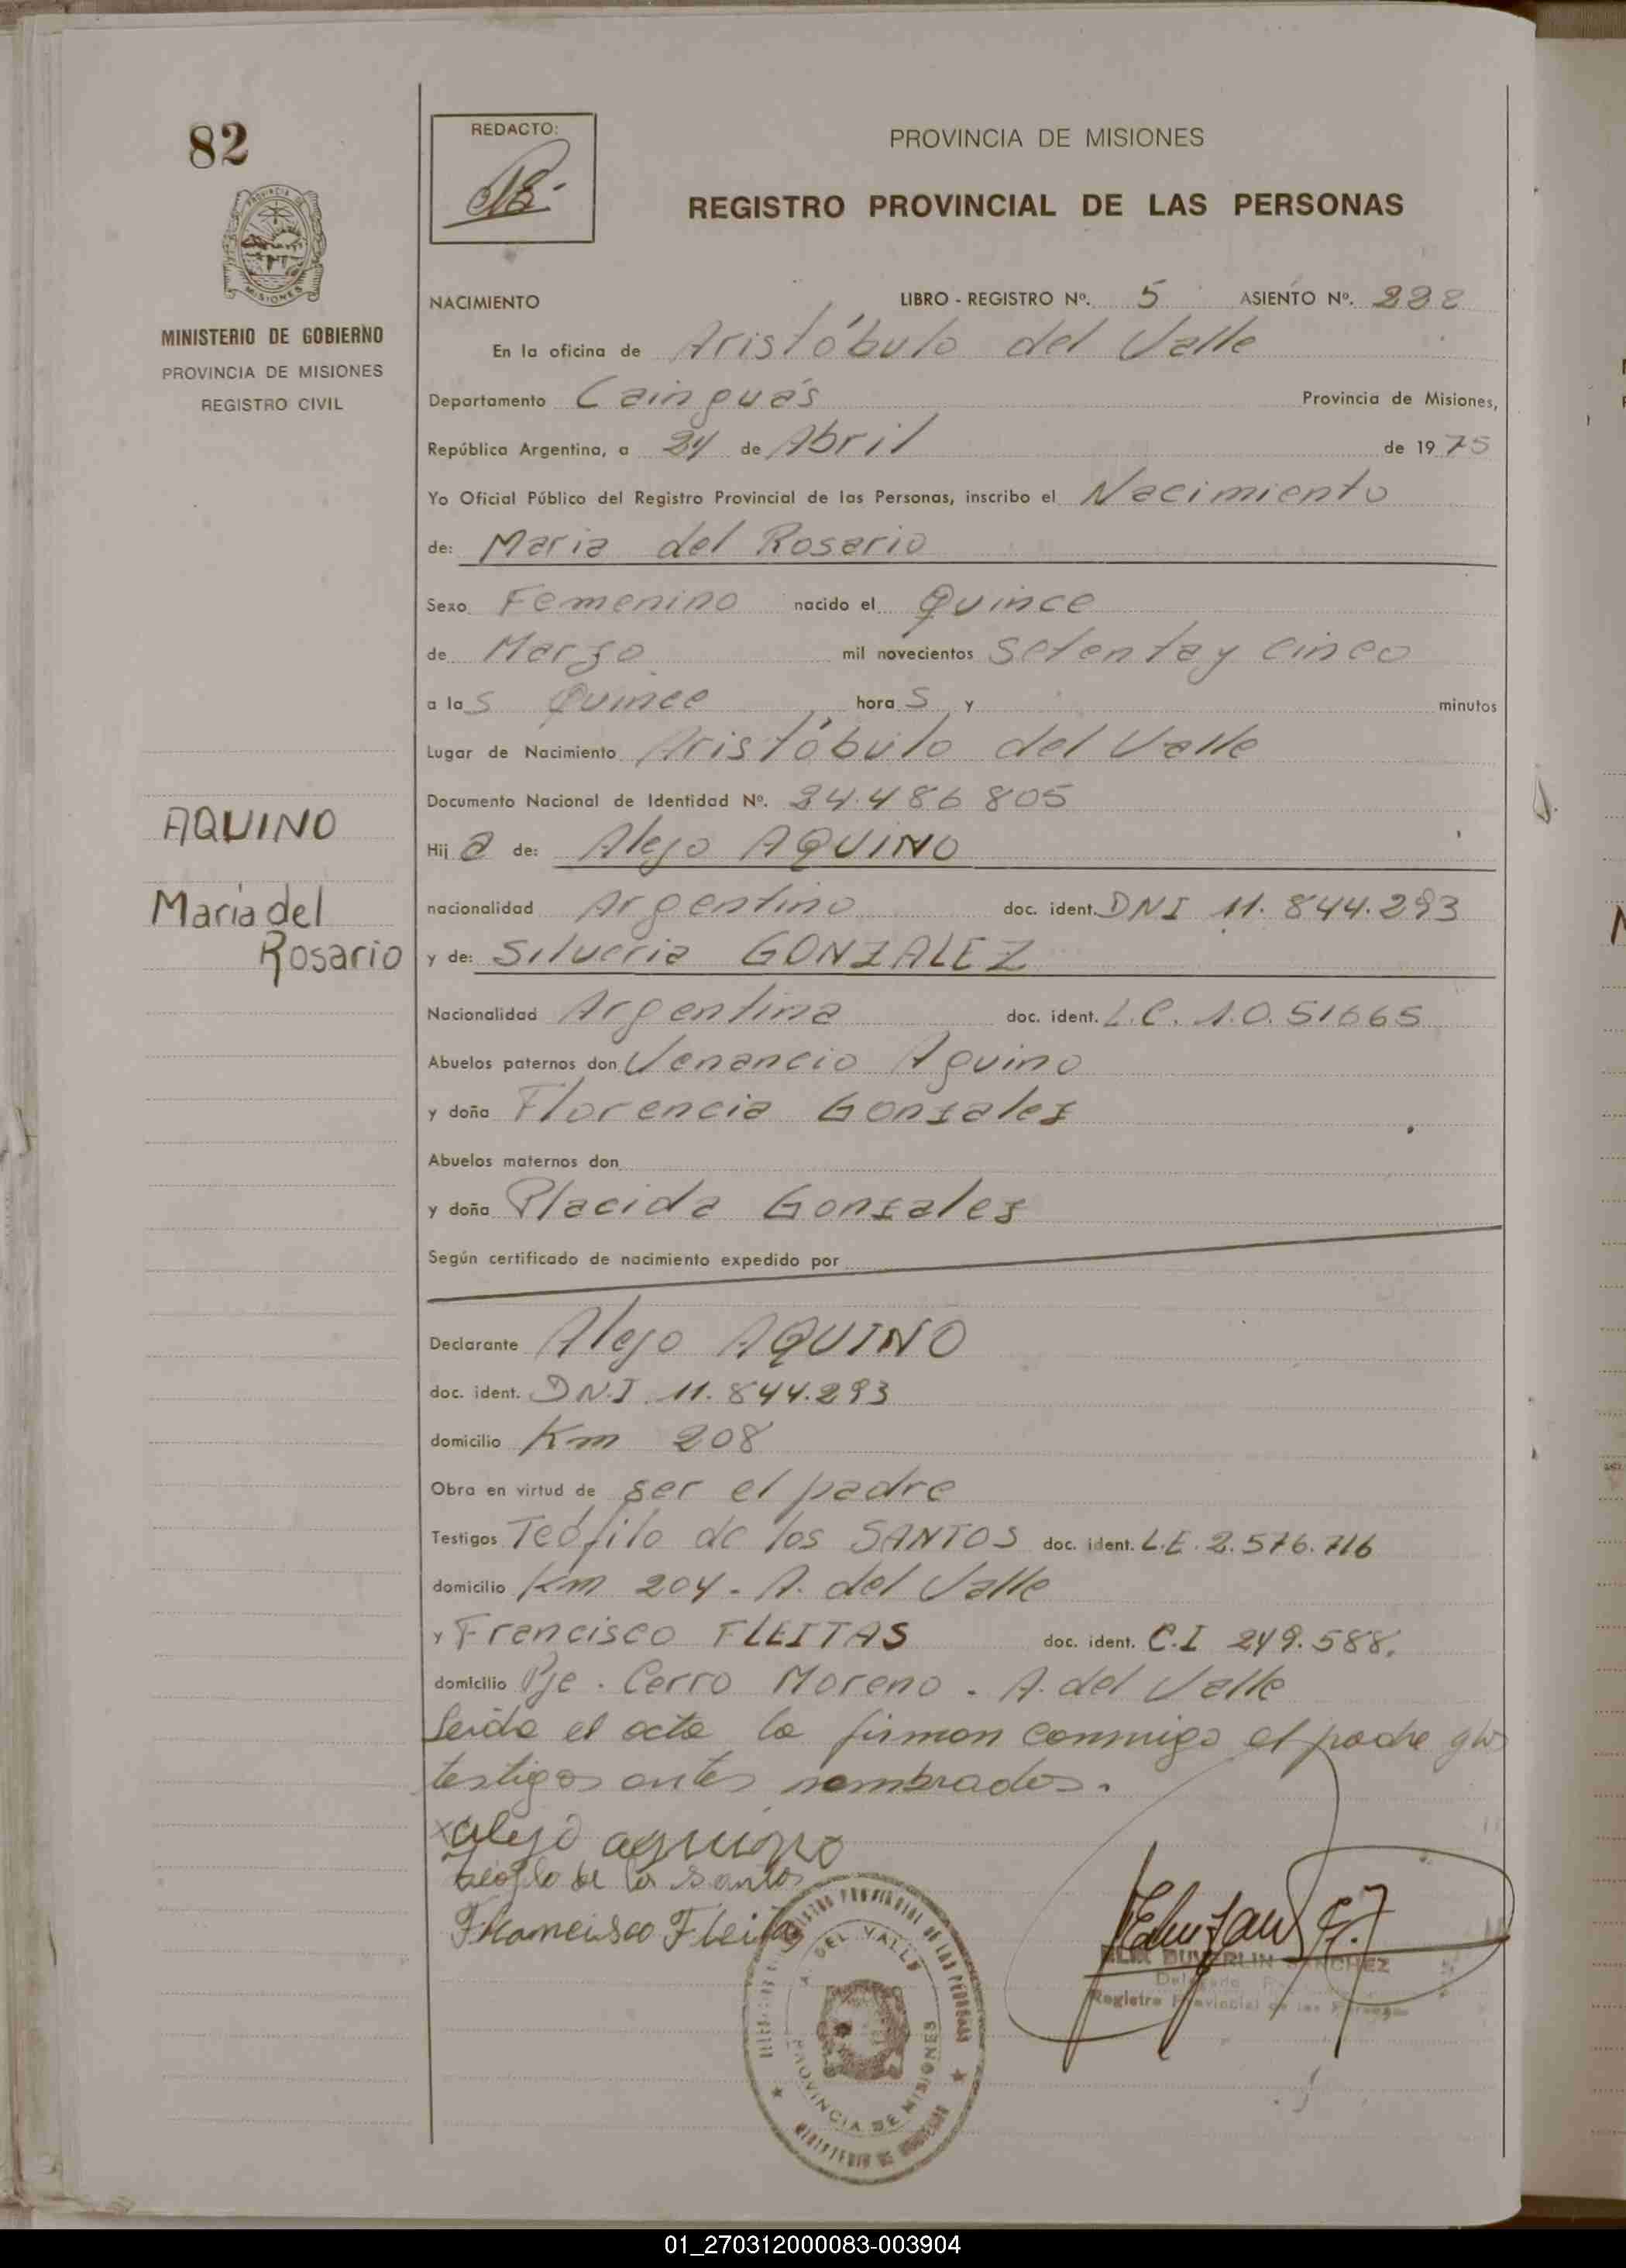 82
REDACTO:
PROVINCIA DE MISIONES
REGISTRO PROVINCIAL DE LAS PERSONAS
MISIONES
MINISTERIO DE GOBIERNO
PROVINCIA DE MISIONES
REGISTRO CIVIL
NACIMIENTO LIBRO - REGISTRO Nº. 5 ASIENTO Nº. 282
En la oficina de Aristóbulo del Valle
Departamento Cainguás Provincia de Misiones,
República Argentina, a 24 de Abril de 1975
Yo Oficial Público del Registro Provincial de las Personas, inscribo el Nacimiento
de: Maria del Rosario
Sexo Femenino nacido el Quince
de Marzo mil novecientos setenta y cinco
a las Quince horas y minutos
Lugar de Nacimiento Aristóbulo del Valle
Documento Nacional de Identidad Nº. 24.486805
AQUINO
María del
Rosario
Hija de: Alejo AQUINO
nacionalidad Argentino doc. ident. DNI 11.844.293
y de: Silveria GONZALEZ
Nacionalidad Argentina doc. ident. L.C. 1.0.51665
Abuelos paternos don Venancio Aquino
y doña Florencia Gonzalez
Abuelos maternos don
y doña Placida Gonzalez
Según certificado de nacimiento expedido por
Declarante Alejo AQUINO
doc. ident. DN.I. 11.844.293
domicilio Km 208
Obra en virtud de ser el padre
Testigos Teófilo de los SANTOS doc. ident. L.E. 2.576.716
domicilio Km 204 - A. del Valle
y Francisco FLEITAS doc. ident. C.I 249.588.
domicilio Pje. Cerro Moreno - A. del Valle
Leida el acta la firman conmigo el padre y los
testigos antes nombrados.
x alejo aquino
teofilo de los Santos
Francisco Fleitas
REGISTRO PROVINCIAL DE LAS PERSONAS
A. DEL VALLE
PROVINCIA DE MISIONES
SANCHEZ
Delegado
Registro Provincial de las Personas
01_270312000083-003904